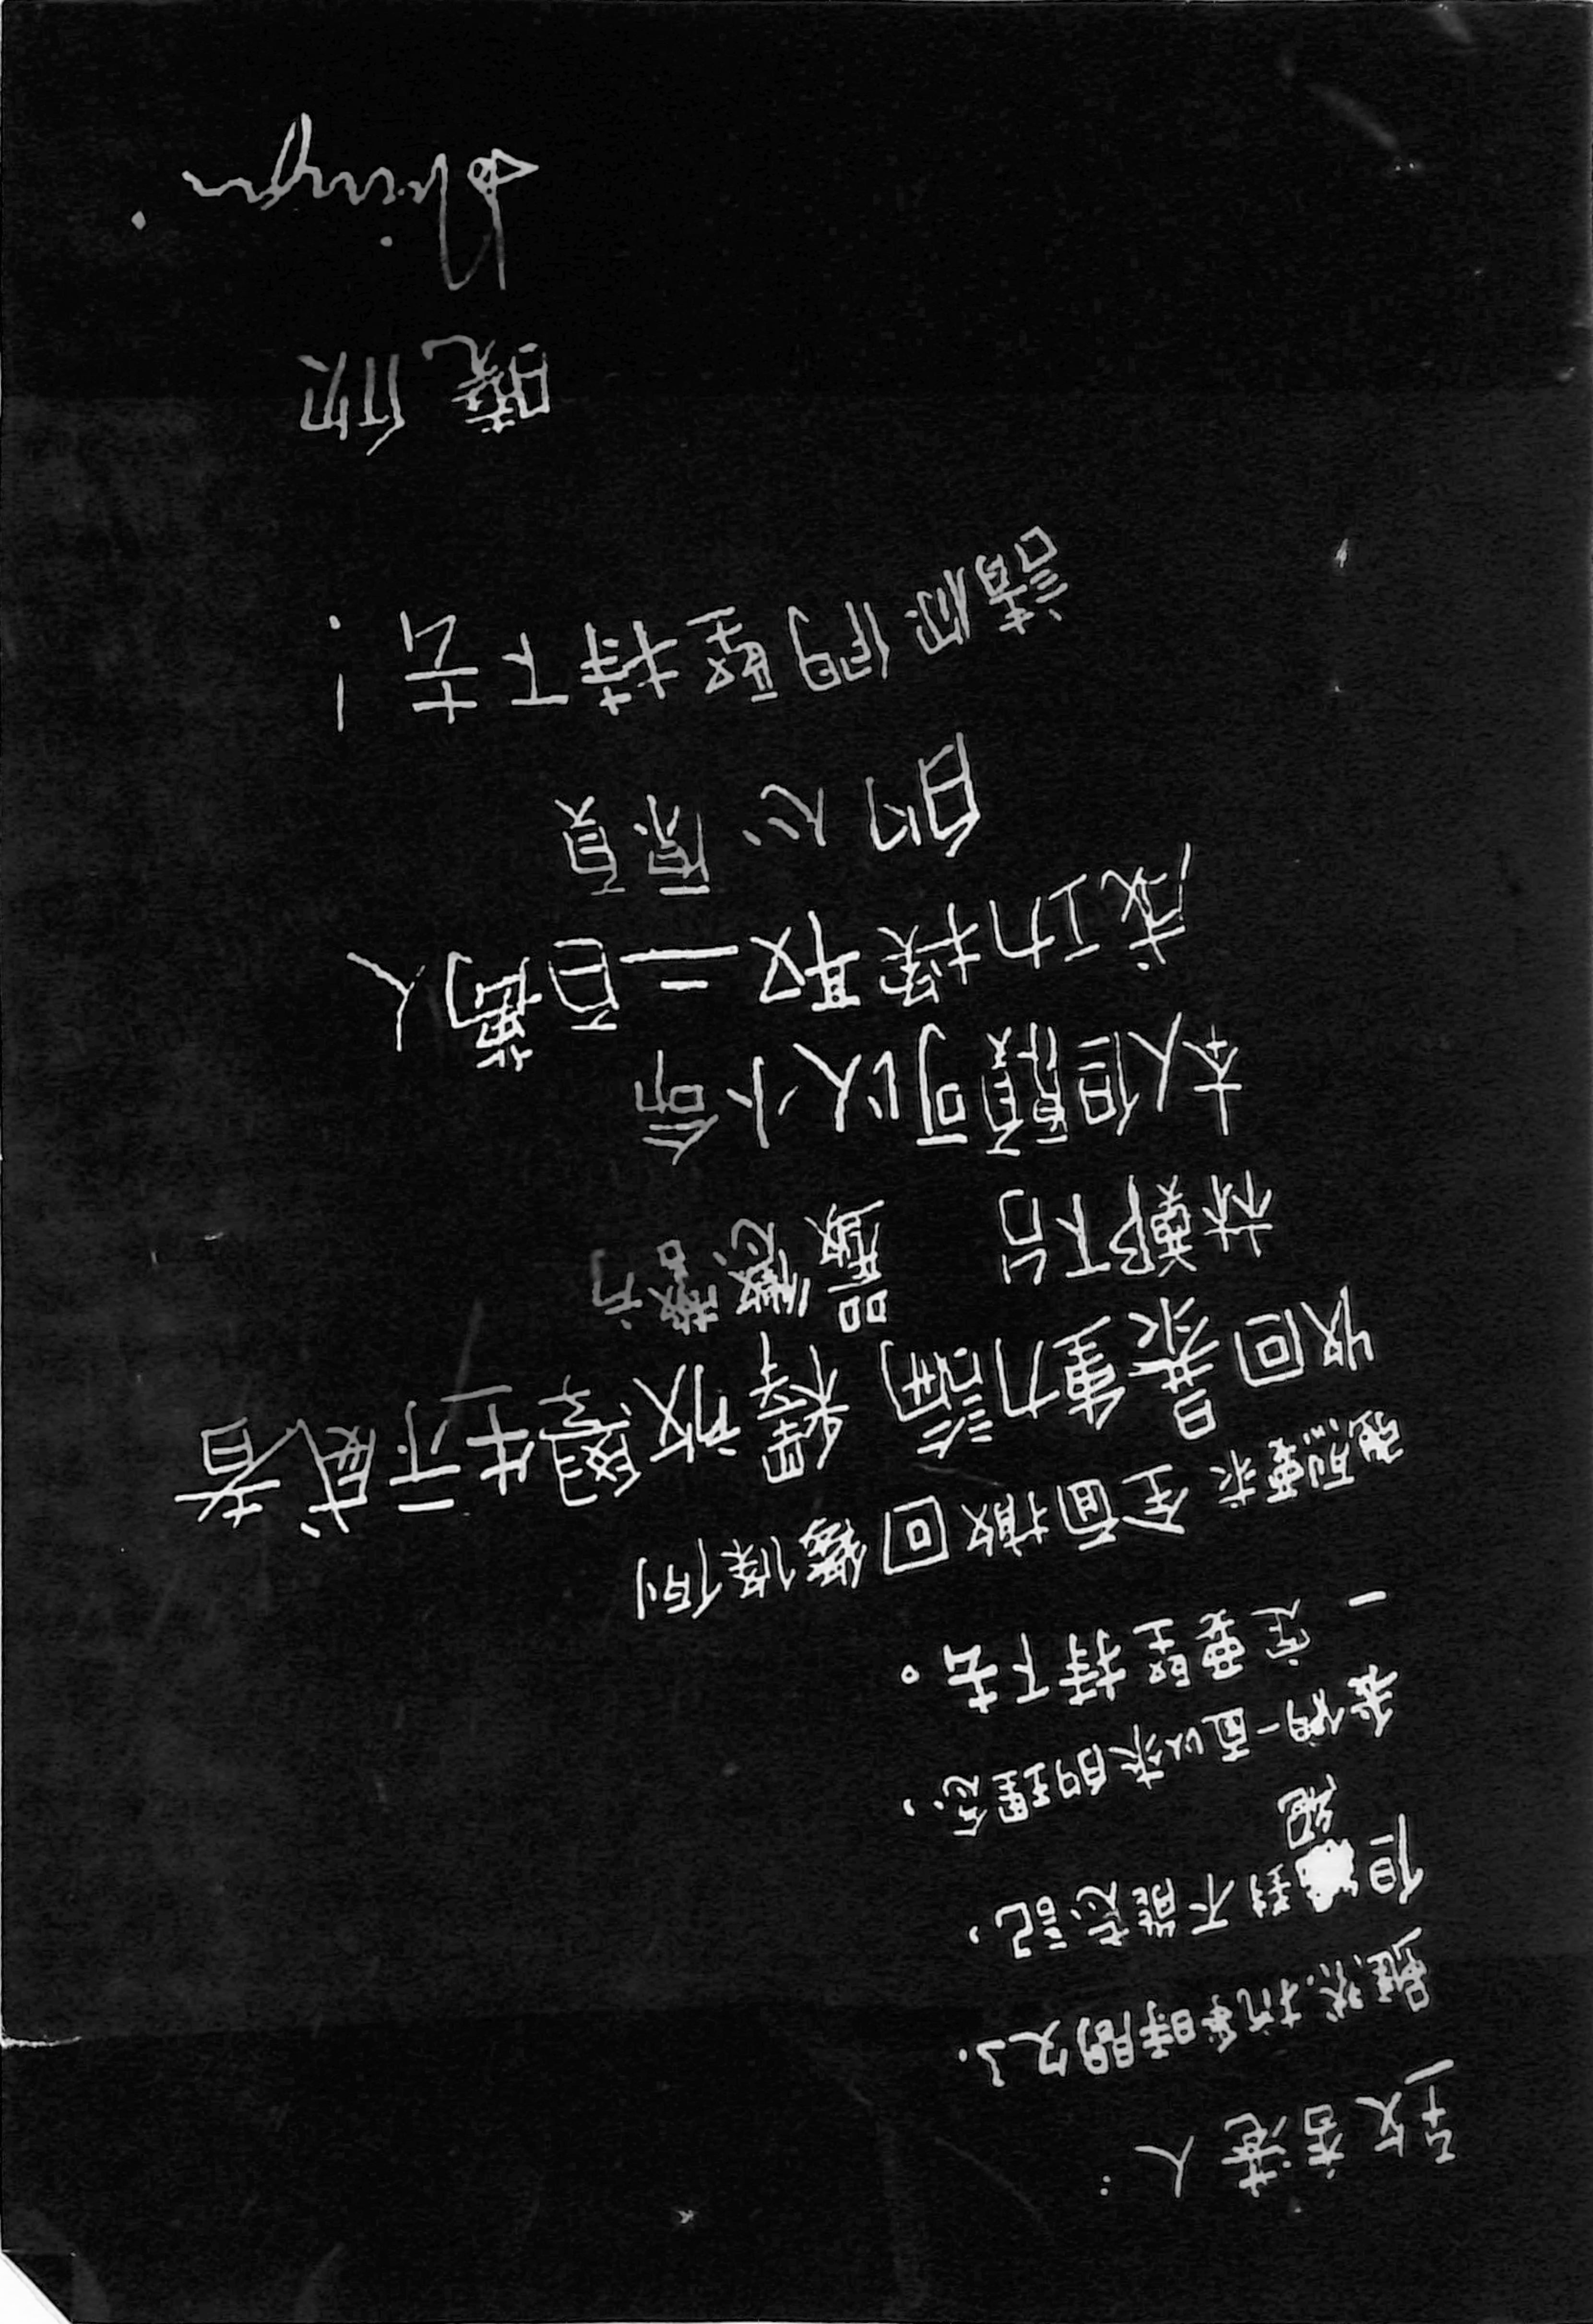 致香港人：
雖然抗爭時間久了.
但絕對不能忘記，
我們一直以來的理念，
一定要堅持下去。
強烈要求 全面撤回條例
收回暴動論 釋放學生示威者
林鄭下台 嚴懲警方
本人但願可以小命
成功換取二百萬人
的心願
請你們堅持下去！
曉欣